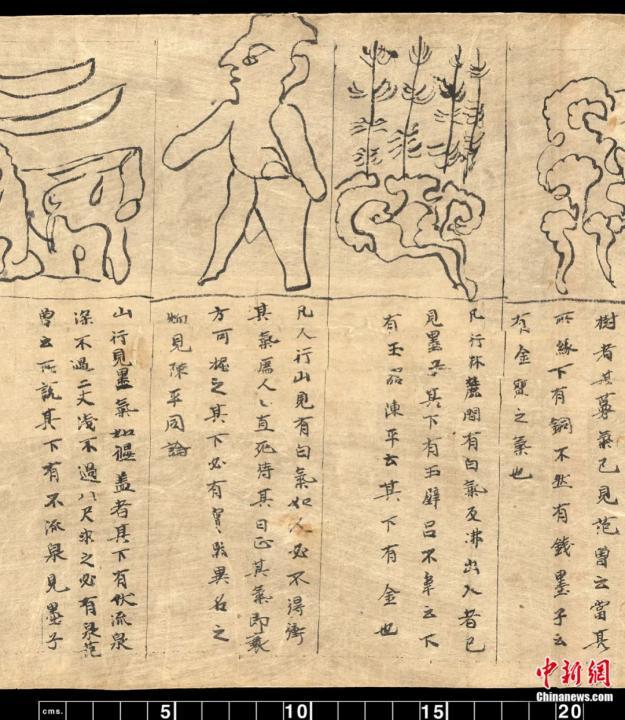 樹者其募氣已見范曾云當其
所緣下有銅不然有錢墨子云
有金寶之氣也
凡行林麓間有白氣及沸出入者已
見墨子其下有玉壁吕不韋云下
有玉器陳平云其下有金也
凡人行山見有白氣如人必不得衝
其氣屬人人直死待其日正其氣即衰
方可掘之其下必有寶器異名之
物見陳平同論
山行見墨氣如偃蓋者其下有伏流泉
深不過二丈浅不過八尺求之必有泉范
曾云所說其下有不流泉見墨子
cms. 5 10 15 20
中新網
Chinanews.com